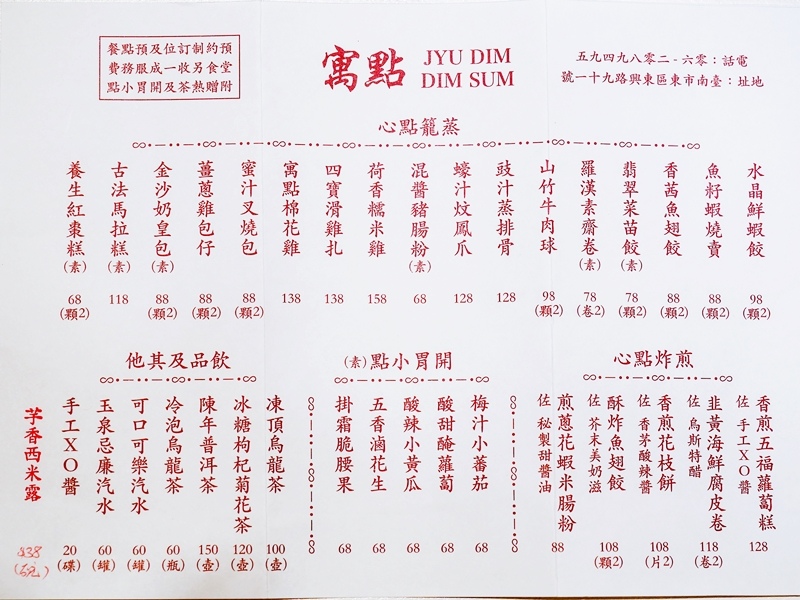 寓點
JYU DIM
DIM SUM
電話：〇六-二〇八九四九五
地址：臺南市東區東興路九十一號
預約制訂位及預點餐
堂食另收一成服務費
附贈熱茶及開胃小點
蒸籠點心
水晶鮮蝦餃 98 (2顆)
魚籽蝦燒賣 88 (2顆)
香茜魚翅餃 88 (2顆)
翡翠菜苗餃(素) 78 (2顆)
羅漢素齋卷(素) 78 (2卷)
山竹牛肉球 98 (2顆)
豉汁蒸排骨 128
蠔汁炆鳳爪 128
混醬豬腸粉(素) 68
荷香糯米雞 158
四寶滑雞扎 138
寓點棉花雞 138
蜜汁叉燒包 88 (2顆)
薑蔥雞包仔 88 (2顆)
金沙奶皇包(素) 88 (2顆)
古法馬拉糕(素) 118
養生紅棗糕(素) 68 (2顆)
煎炸點心
香煎五福蘿蔔糕
佐 手工XO醬
128
韭黃海鮮腐皮卷
佐 烏斯特醋
118 (2卷)
香煎花枝餅
佐 香茅酸辣醬
108 (2片)
酥炸魚翅餃
佐 芥末美奶滋
108 (2顆)
煎蔥花蝦米腸粉
佐 秘製甜醬油
88
開胃小點(素)
梅汁小蕃茄 68
酸甜醃蘿蔔 68
酸辣小黃瓜 68
五香滷花生 68
掛霜脆腰果 68
飲品及其他
凍頂烏龍茶 100 (壺)
冰糖枸杞菊花茶 120 (壺)
陳年普洱茶 150 (壺)
冷泡烏龍茶 60 (瓶)
可口可樂汽水 60 (罐)
玉泉忌廉汽水 60 (罐)
手工XO醬 20 (碟)
芋香西米露